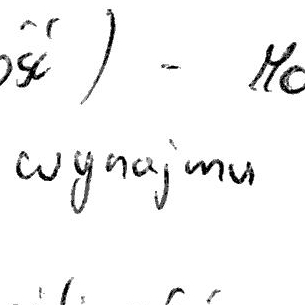 ość) - Mo
wynajmu